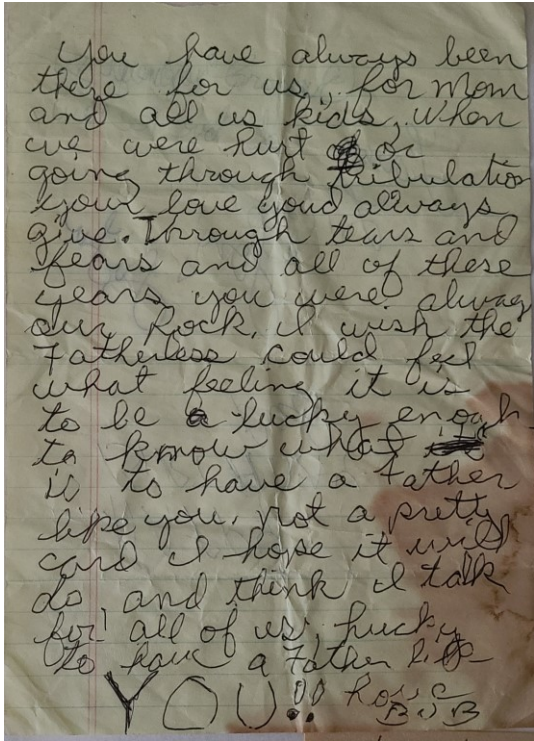 You have always been
there for us, for Mom
and all us kids, when
we were hurt or
going through tribulation
your love you'd always
give. Through tears and
fears and all of these
years you were always
our Rock. I wish the
Fatherless could feel
what feeling it is
to be a lucky enough
to know what
is to have a Father
like you, not a pretty
card I hope it will
do and think I talk
for all of us, Lucky
to have a Father like
YOU!!